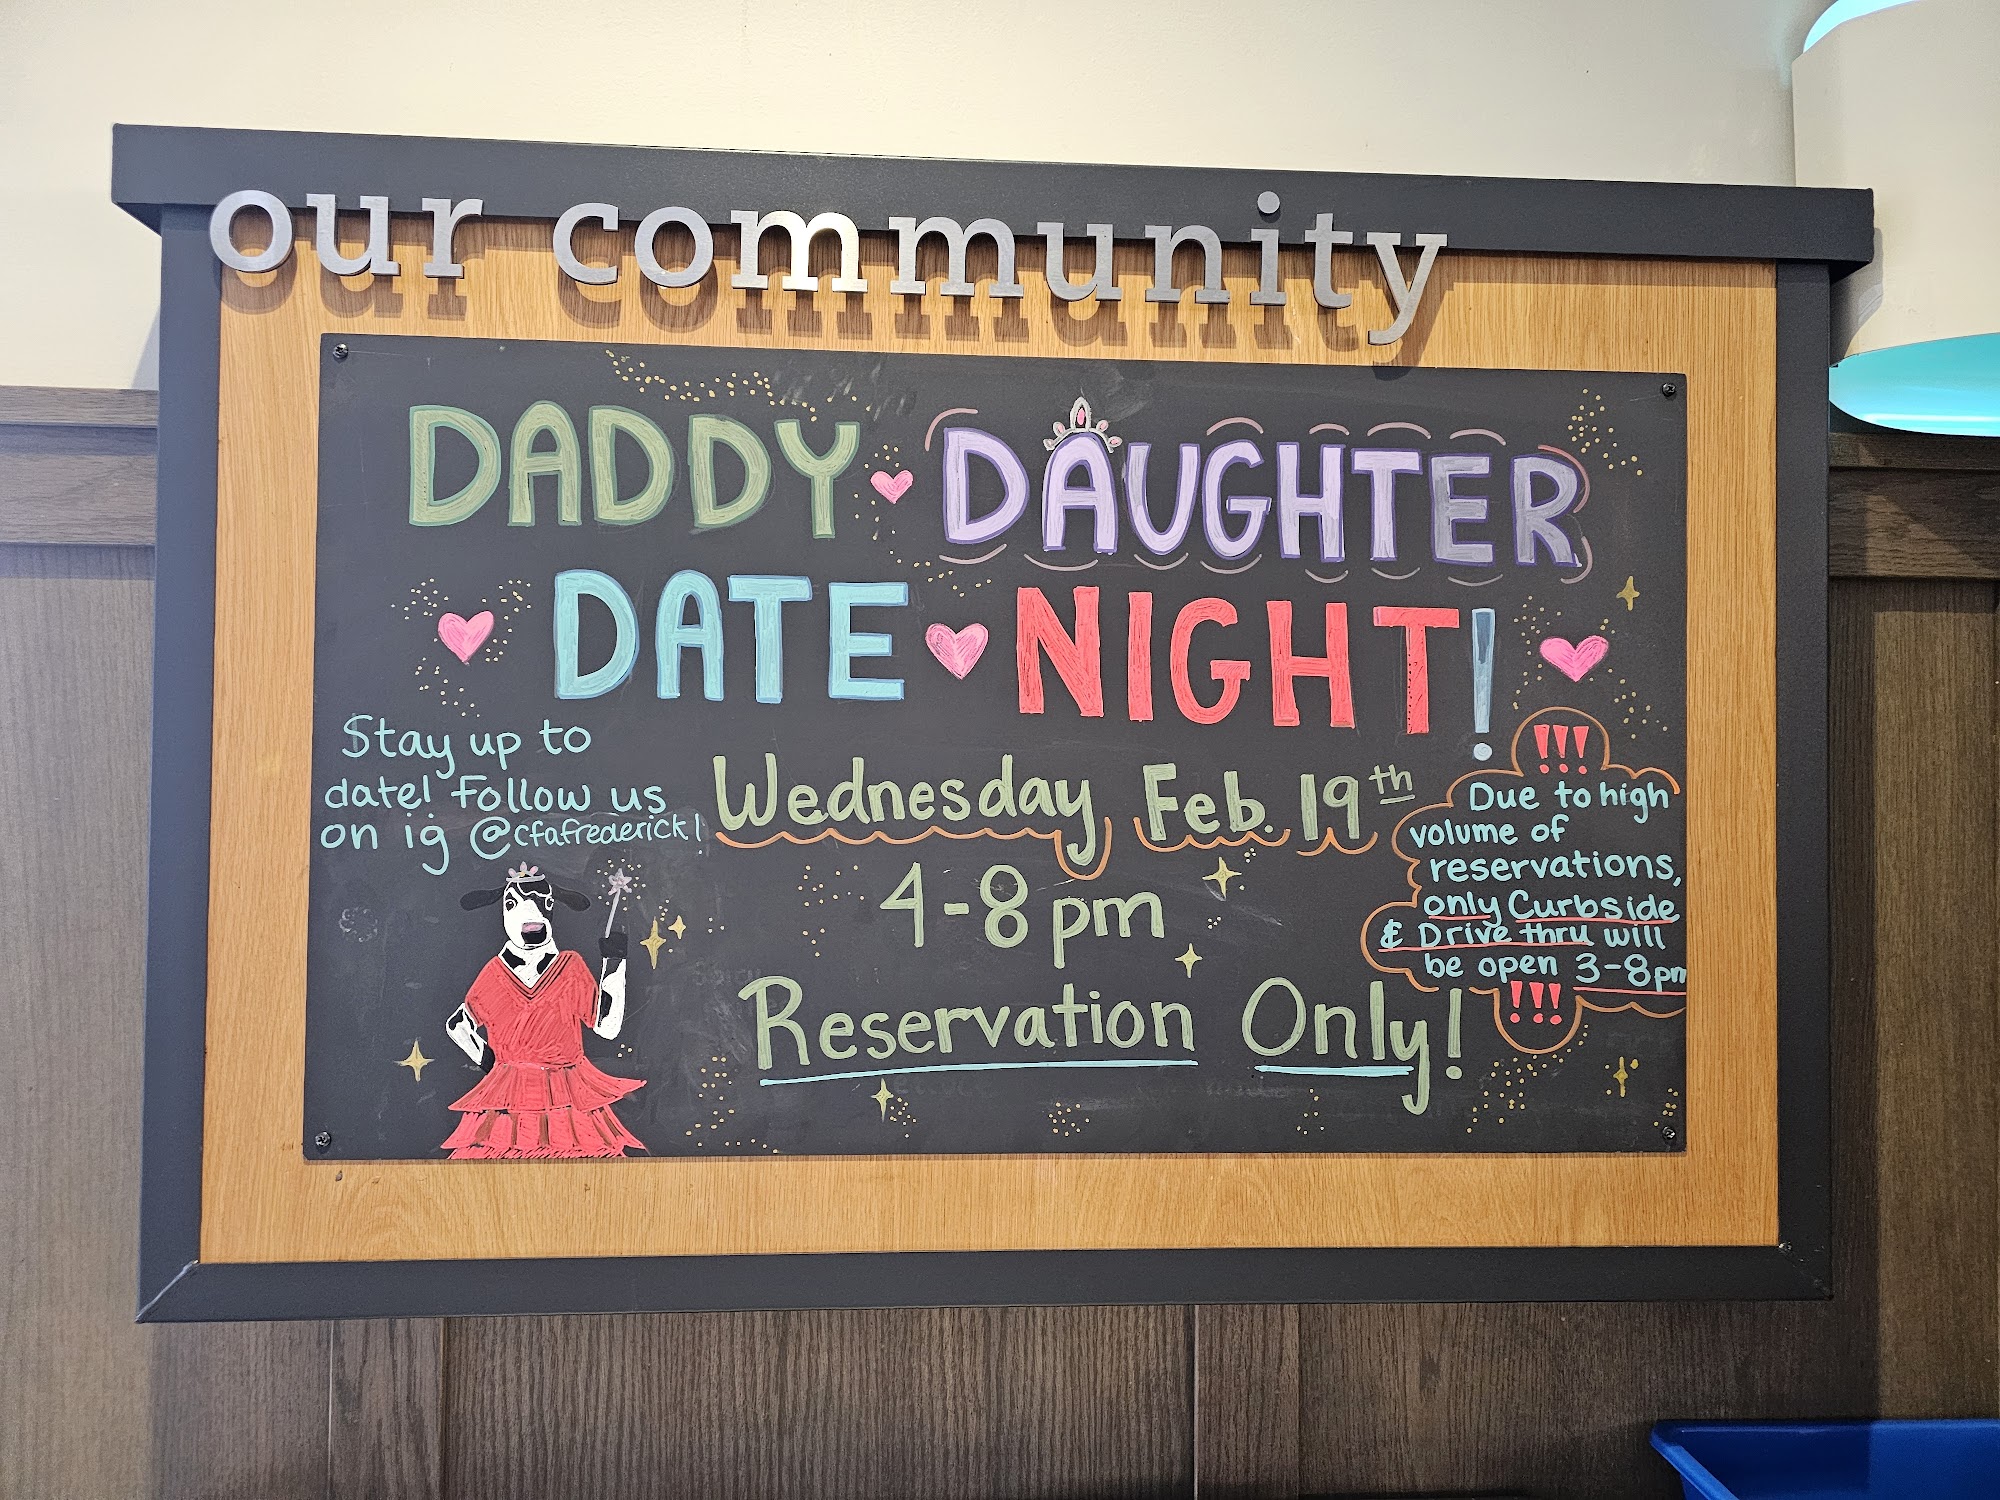 our community
DADDY DAUGHTER
DATE NIGHT!
Stay up to
date! Follow us
on ig @cfafrederick1
Wednesday Feb. 19th
4-8pm
Reservation Only!
!!!
Due to high
volume of
reservations,
only Curbside
& Drive thru will
be open 3-8pm
!!!